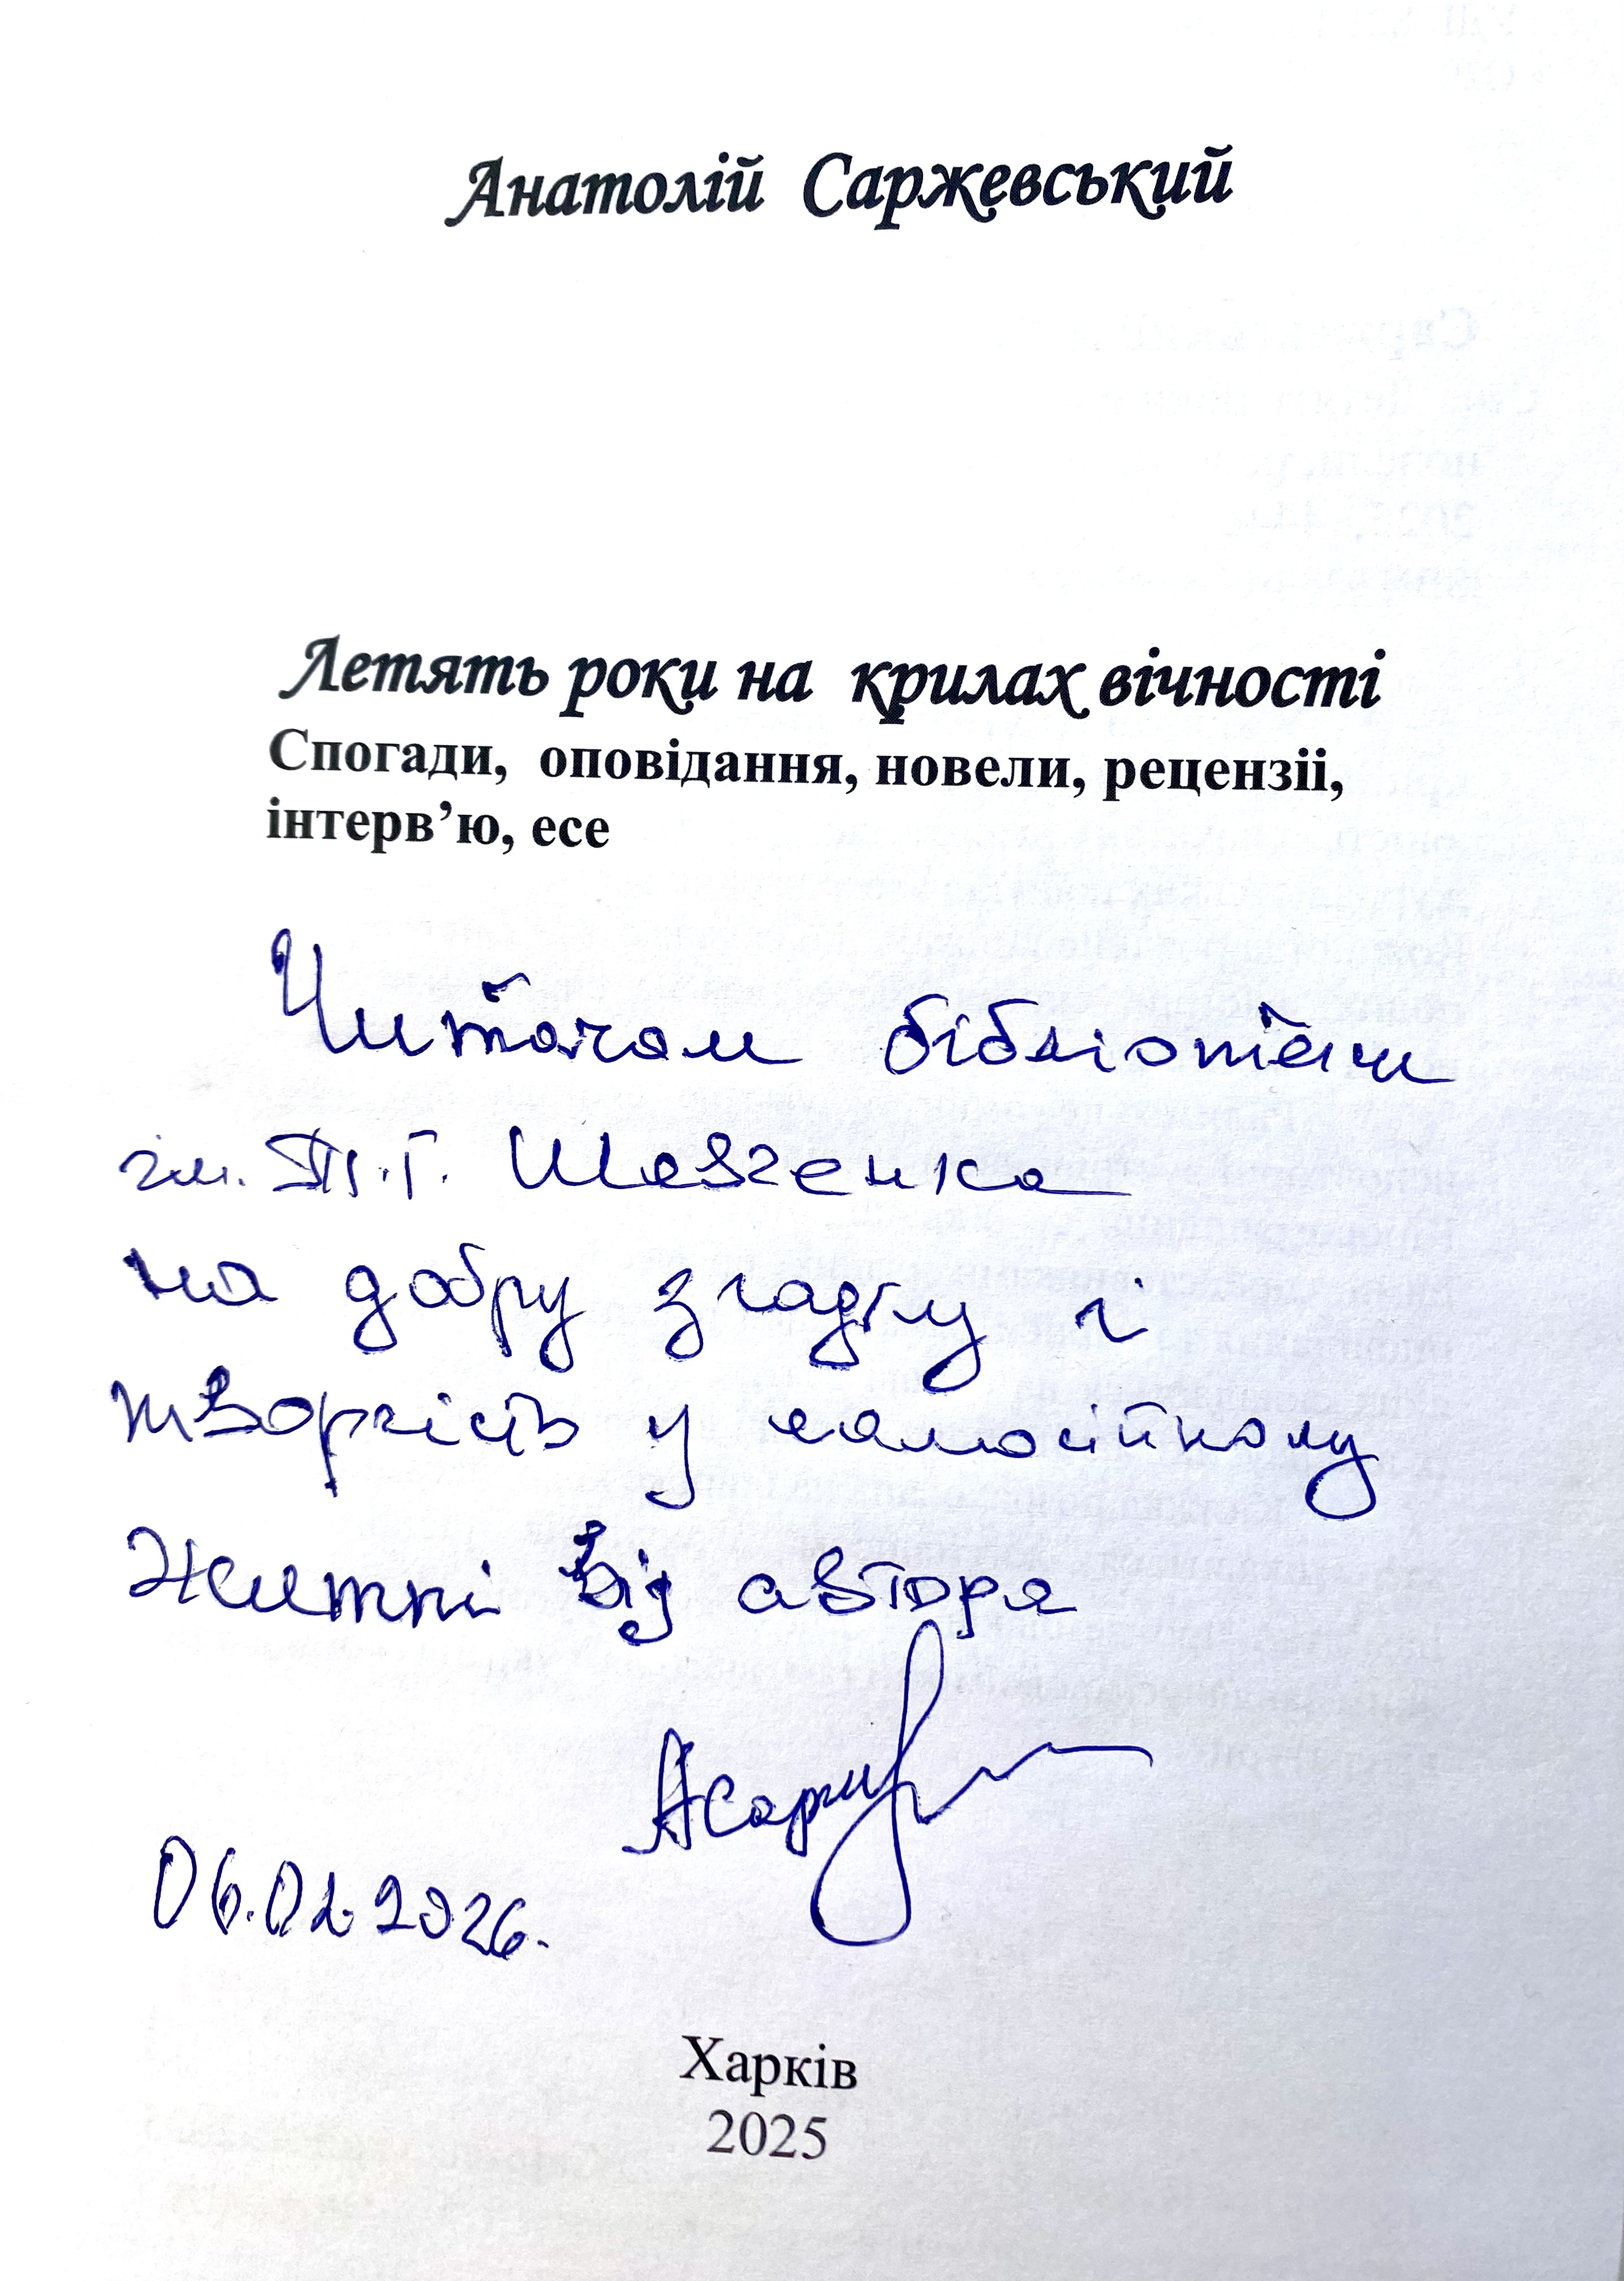 Анатолій Саржевський
Летять роки на крилах вічності
Спогади, оповідання, новели, рецензіі,
інтерв’ю, есе
Читачам бібліотеки
ім. Т.Г. Шевченка
на добру згадку і
творчість у самостійному
житті від автора
06.02.2026.
Харків
2025